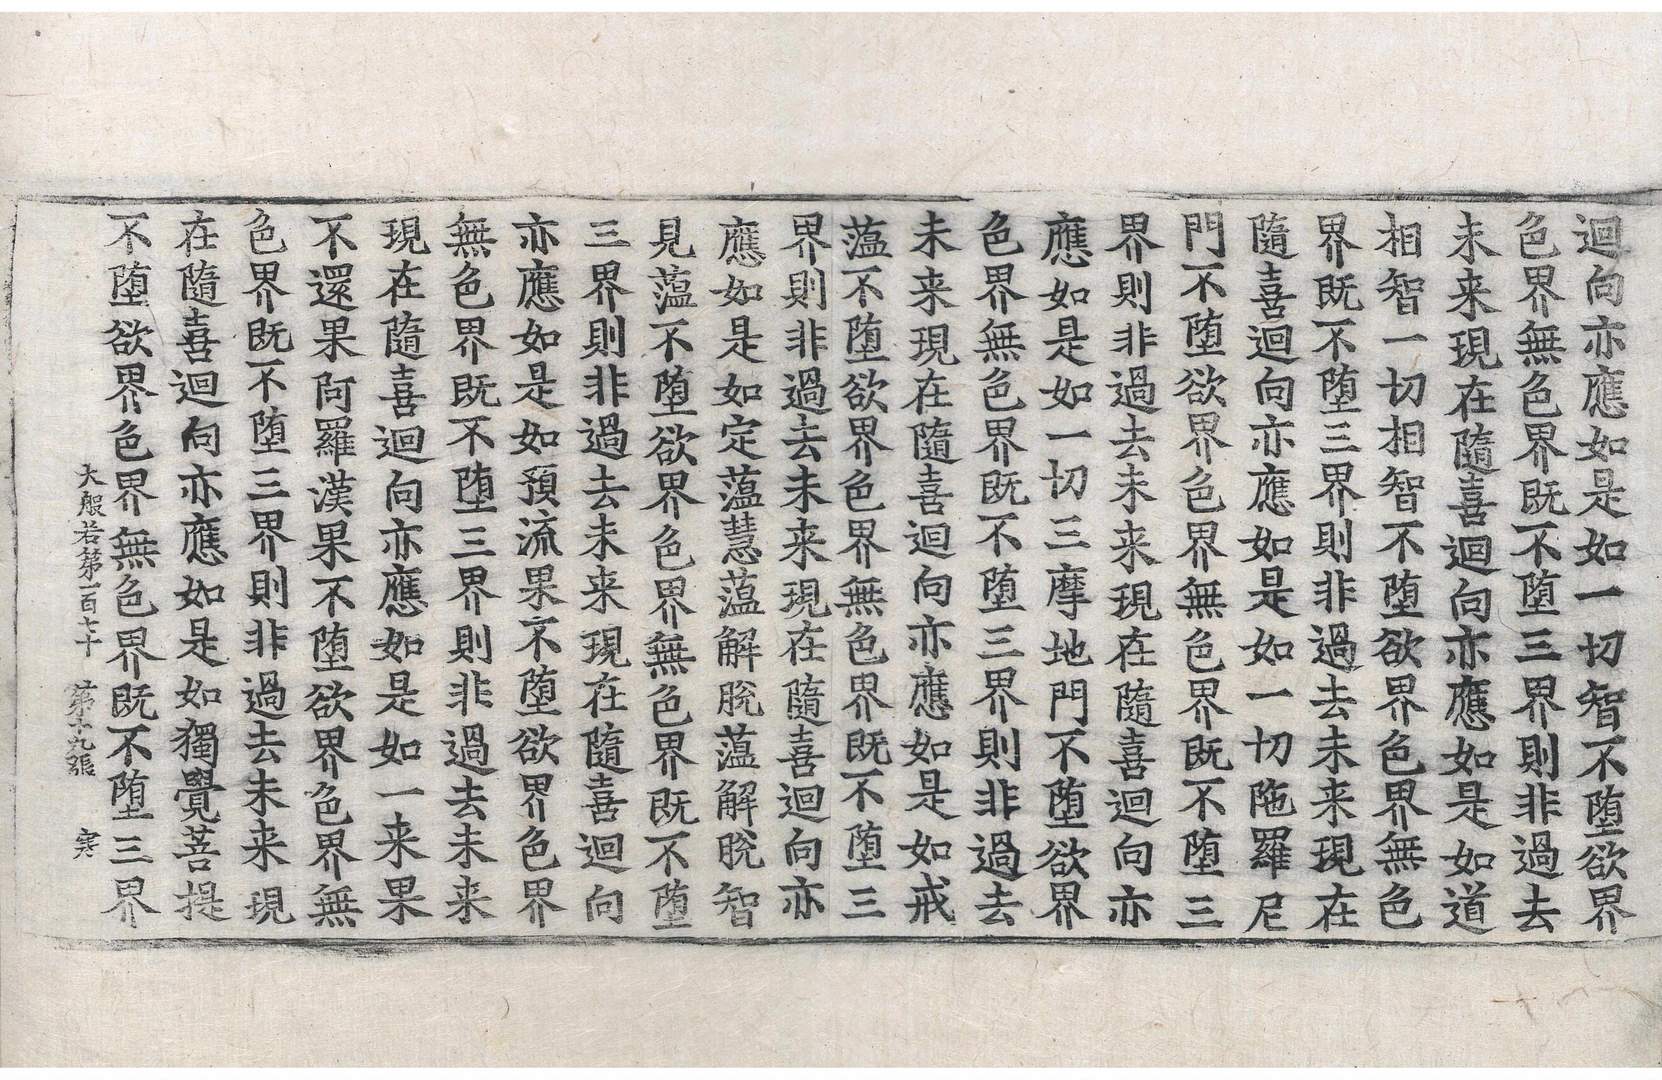 迴向亦應如是如一切智不堕欲界
色界無色界既不堕三界則非過去
未来現在隨喜迴向亦應如是如道
相智一切相智不堕欲界色界無色
界既不堕三界則非過去未来現在
隨喜迴向亦應如是如一切陁羅尼
門不堕欲界色界無色界既不堕三
界則非過去未来現在隨喜迴向亦
應如是如一切三摩地門不堕欲界
色界無色界既不堕三界則非過去
未来現在隨喜迴向亦應如是如戒
薀不堕欲界色界無色界既不堕三
界則非過去未来現在隨喜迴向亦
應如是如定薀慧薀解脫薀解脫智
見薀不堕欲界色界無色界既不堕
三界則非過去未来現在隨喜迴向
亦應如是如預流果不堕欲界色界
無色界既不堕三界則非過去未来
現在隨喜迴向亦應如是如一来果
不還果阿羅漢果不堕欲界色界無
色界既不堕三界則非過去未来現
在隨喜迴向亦應如是如獨覺菩提
不堕欲界色界無色界既不堕三界
大般若第一百七十 第十九張 寒